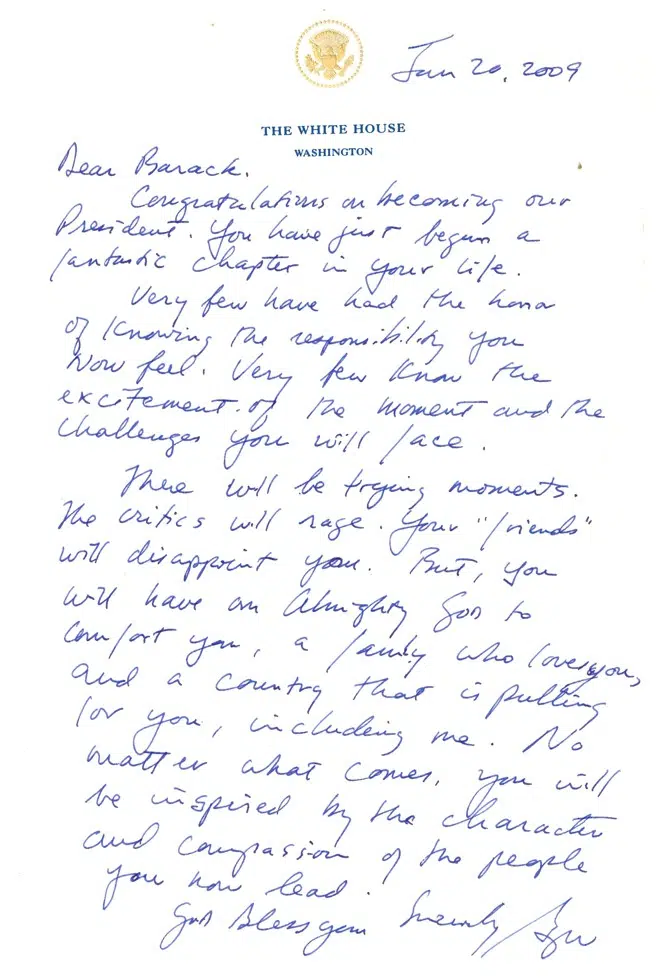 Jan 20, 2009
THE WHITE HOUSE
WASHINGTON
Dear Barack.
Congratulations on becoming our
President. You have just begun a
fantastic chapter in your life.
Very few have had the honor
of knowing the responsibility you
now feel. Very few know the
excitement of the moment and the
challenges you will face.
There will be trying moments.
The critics will rage. Your "friends"
will disappoint you. But, you
will have an Almighty God to
comfort you, a family who loves you,
and a country that is pulling
for you, including me. No
matter what comes, you will
be inspired by the character
and compassion of the people
you now lead.
God Bless you Sincerely,